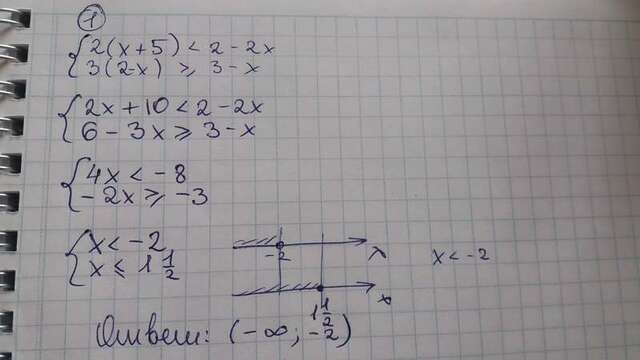 1
2(x+5) < 2 - 2x
3(2-x) ⩾ 3 - x
2x + 10 < 2 - 2x
6 - 3x ⩾ 3 - x
4x < - 8
- 2x ⩾ -3
x < -2
x ⩽ 1 1/2
-2 x
1 1/2 x
x < -2
Ответ: (-∞; -2)